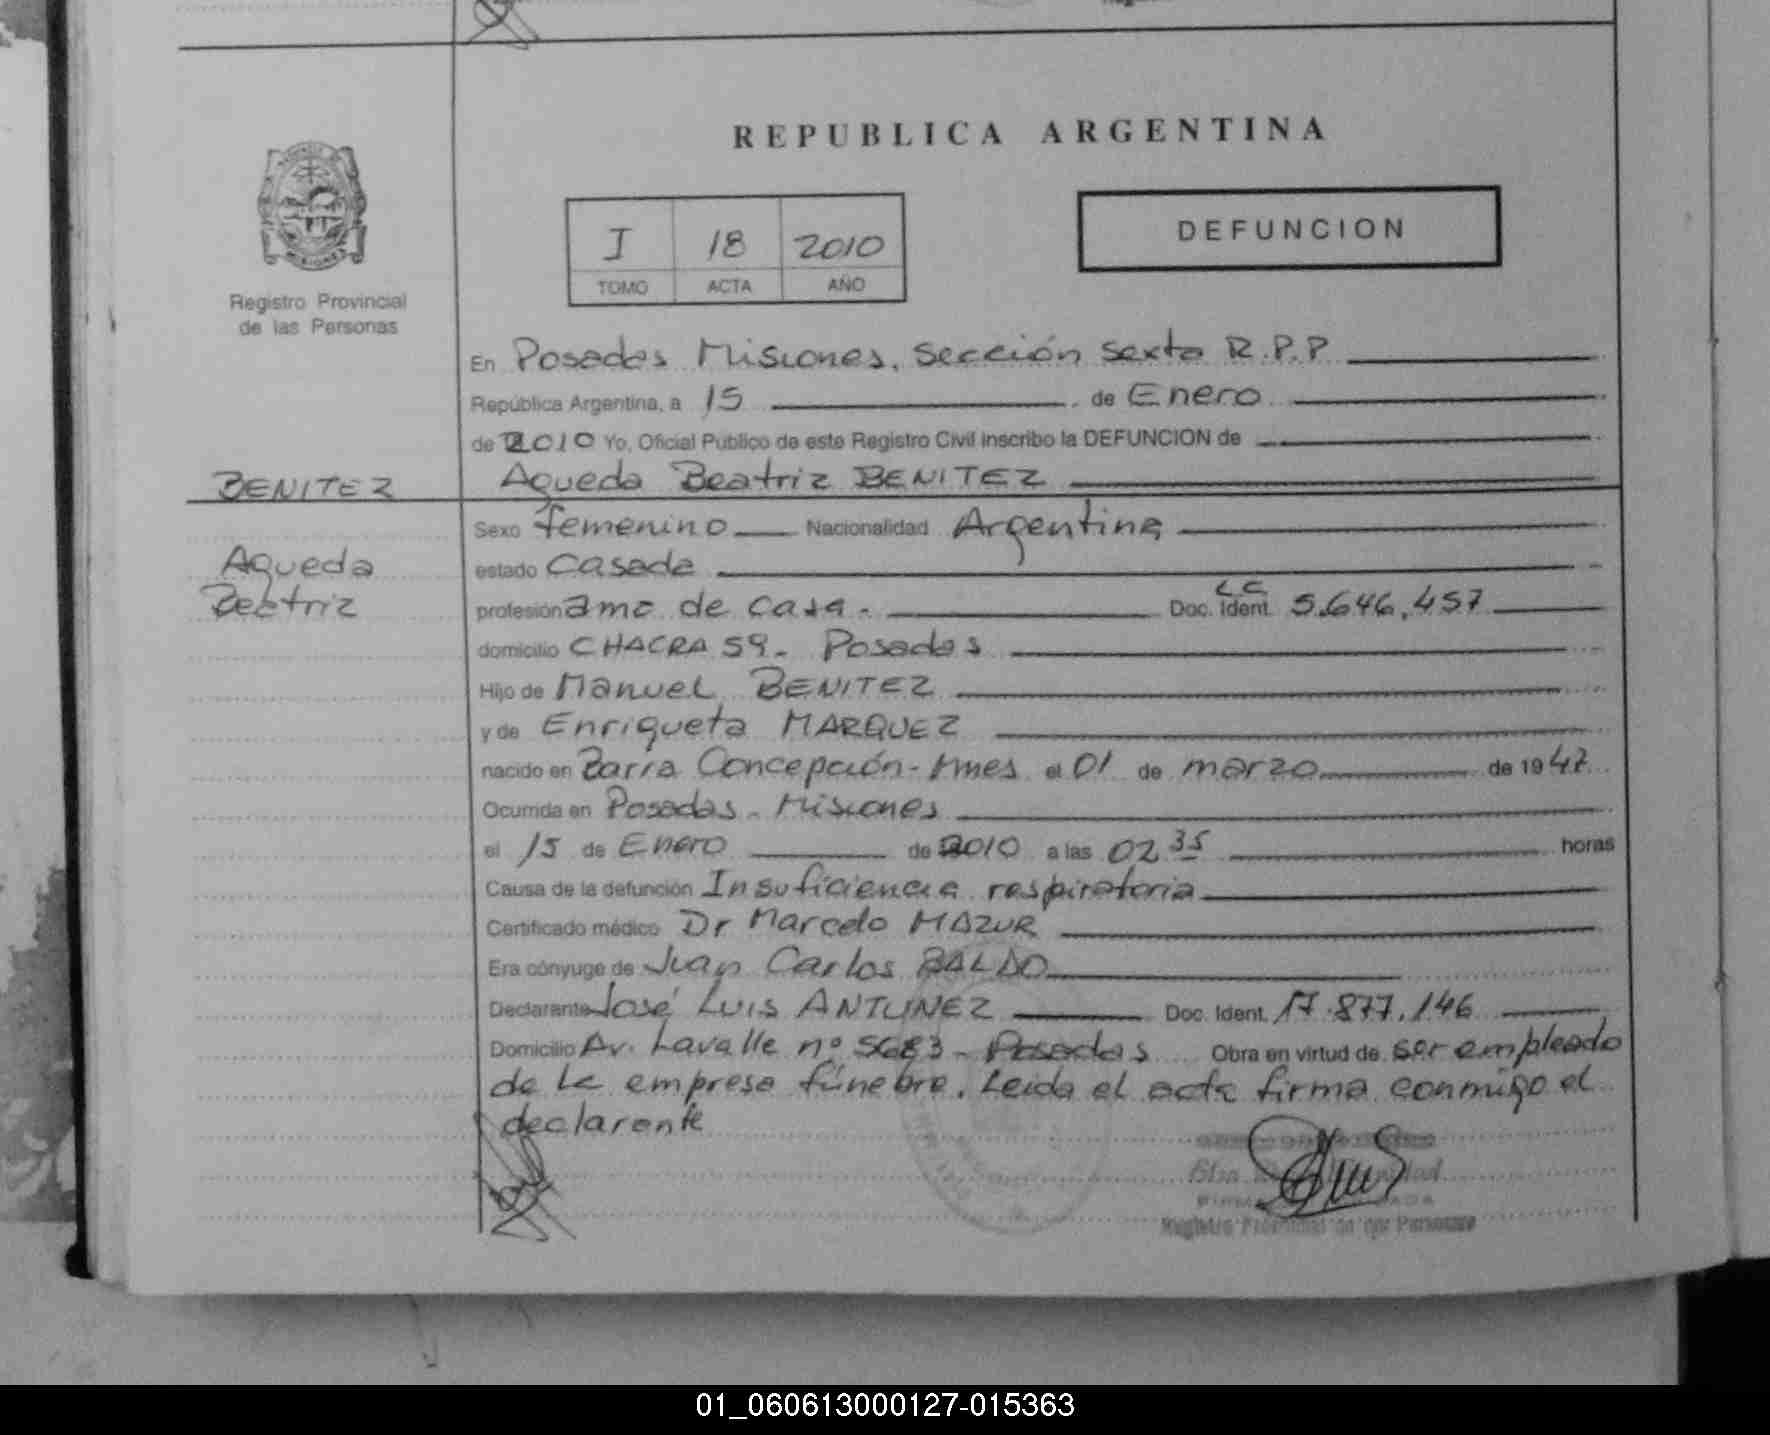 REPUBLICA ARGENTINA
I 18 2010
TOMO ACTA AÑO
DEFUNCION
Registro Provincial
de las Personas
En Posadas Misiones, Sección Sexta R.P.P
República Argentina, a 15 de Enero
de 2010 Yo, Oficial Público de este Registro Civil inscribo la DEFUNCION de
BENITEZ Agueda Beatriz BENITEZ
Sexo femenino Nacionalidad Argentina
Agueda
estado Casada
Beatriz
LC
profesión ama de casa. Doc. Ident. 5.646.457
domicilio CHACRA 59. Posadas
Hijo de Manuel BENITEZ
y de Enriqueta MARQUEZ
nacido en Barra Concepción - Mnes el 01 de marzo de 1947
Ocurrida en Posadas - Misiones
el 15 de Enero de 2010 a las 02 35 horas
Causa de la defunción Insuficiencia respiratoria
Certificado médico Dr Marcelo MAZUR
Era cónyuge de Juan Carlos BALDO
Declarante José Luis ANTUNEZ Doc. Ident. 17.877.146
Domicilio Av. Lavalle nº 5683 - Posadas Obra en virtud de ser empleado
de la empresa fúnebre. Leida el acta firma conmigo el
declarante
Registro Provincial de las Personas
01_060613000127-015363